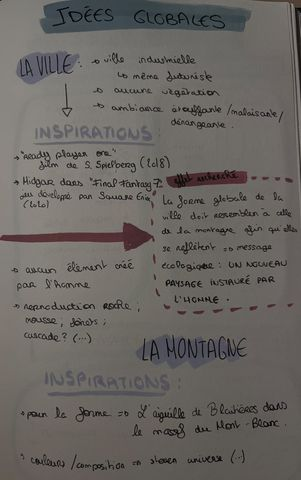 IDÉES GLOBALES
LA VILLE : → ville industrielle
↳ même futuriste
→ aucune végétation
→ ambiance étouffante/malaisante/
dérangeante.
INSPIRATIONS :
→ "Ready player one"
film de S. Spielberg (2018)
→ Midgar dans "Final Fantasy 7"
jeu développé par Square Enix
(2020)
effet recherché
La forme globale de la
ville doit ressembler à celle
de la montagne afin qu'elles
se reflètent ⇒ message
écologique : UN NOUVEAU
PAYSAGE INSTAURÉ PAR
L'HOMME.
→ aucun élément créé
par l'homme
→ reproduction roche,
mousse, forêts,
cascade ? (...)
LA MONTAGNE
INSPIRATIONS :
→ pour la forme ⇒ L'aiguille de Blaitières dans
le massif du Mont-Blanc.
→ couleurs/composition ⇒ steven universe (..)